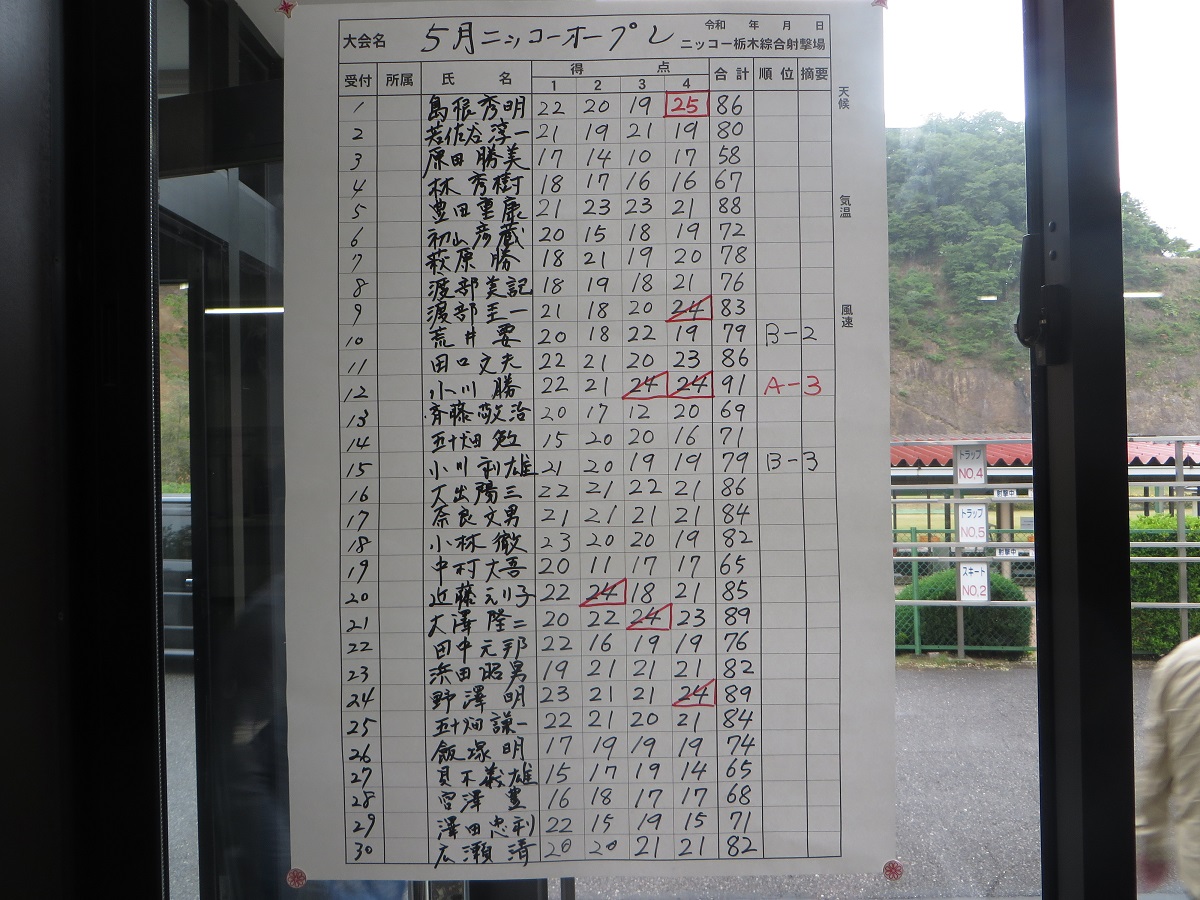 大会名 5月ニッコーオープン 令和 年 月 日
ニッコー栃木綜合射撃場
受付 所属 氏 名 得 点 合計 順位 摘要
1 2 3 4
1 島根秀明 22 20 19 25 86
2 若佐谷淳一 21 19 21 19 80
3 原田勝美 17 14 10 17 58
4 林秀樹 18 17 16 16 67
5 豊田重康 21 23 23 21 88
6 初山彦蔵 20 15 18 19 72
7 萩原勝 18 21 19 20 78
8 渡部美記 18 19 18 21 76
9 渡部圭一 21 18 20 24 83
10 荒井要 20 18 22 19 79 B-2
11 田口文夫 22 21 20 23 86
12 小川勝 22 21 24 24 91 A-3
13 斉藤敬治 20 17 12 20 69
14 五十畑勉 15 20 20 16 71
15 小川利雄 21 20 19 19 79 B-3
16 大出陽三 22 21 22 21 86
17 奈良文男 21 21 21 21 84
18 小林徹 23 20 20 19 82
19 中村大吾 20 11 17 17 65
20 近藤えり子 22 24 18 21 85
21 大澤隆二 20 22 24 23 89
22 田中元邦 22 16 19 19 76
23 浜田昭男 19 21 21 21 82
24 野澤明 23 21 21 24 89
25 五十畑謙一 22 21 20 21 84
26 飯塚明 17 19 19 19 74
27 貝木義雄 15 17 19 14 65
28 宮澤豊 16 18 17 17 68
29 澤田忠利 22 15 19 15 71
30 広瀬清 20 20 21 21 82
天候
気温
風速
トラップ
NO.4
射撃中
トラップ
NO.5
射撃中
スキート
NO.2